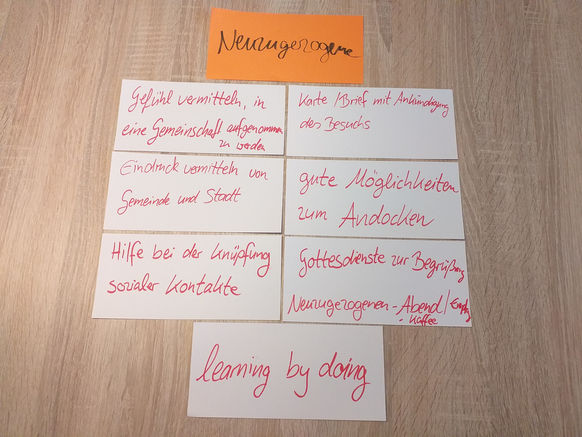 Neuzugezogene
Gefühl vermitteln, in
eine Gemeinschaft aufgenommen
zu werden
Karte / Brief mit Ankündigung
des Besuchs
Eindruck vermitteln von
Gemeinde und Stadt
gute Möglichkeiten
zum Andocken
Hilfe bei der Knüpfung
sozialer Kontakte
Gottesdienste zur Begrüßung
Neuzugezogenen-Abend /
-Kaffee
learning by doing